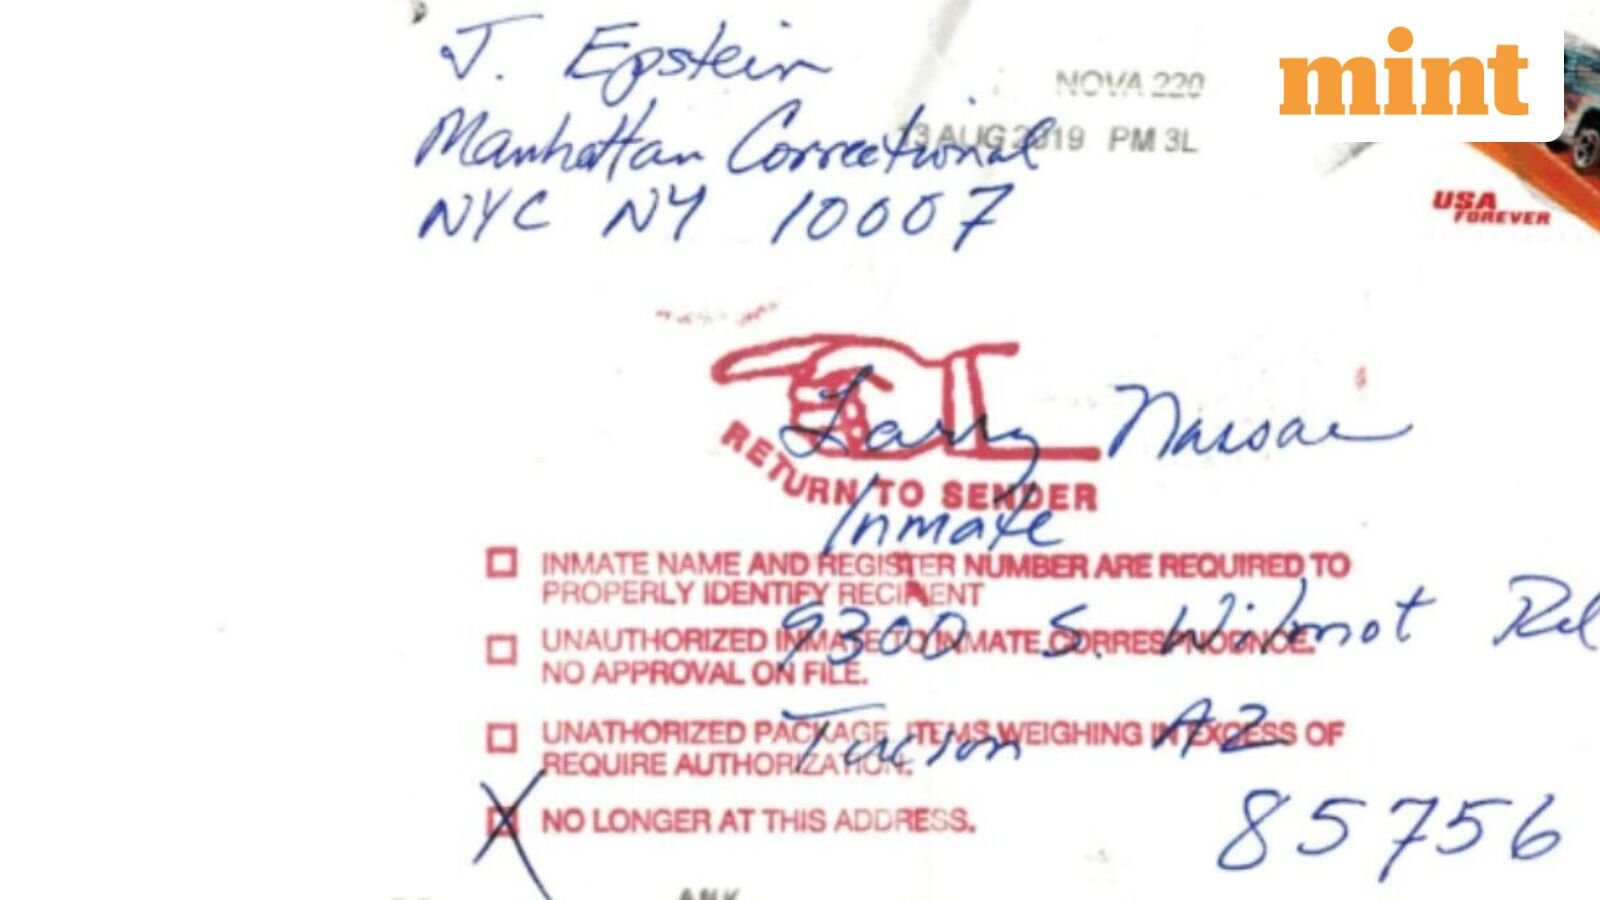 J. Epstein
Manhattan Correctional
NYC NY 10007
NOVA 220
13 AUG 2019 PM 3L
mint
USA
FOREVER
RETURN TO SENDER
Larry Nassar
Inmate
9300 S. Wilmot Rd
Tucson AZ
85756
INMATE NAME AND REGISTER NUMBER ARE REQUIRED TO
PROPERLY IDENTIFY RECIPIENT
UNAUTHORIZED INMATE TO INMATE CORRESPNODNCE.
NO APPROVAL ON FILE.
UNATHORIZED PACKAGE, ITEMS WEIGHING IN EXCESS OF
REQUIRE AUTHORIZATION.
X NO LONGER AT THIS ADDRESS.